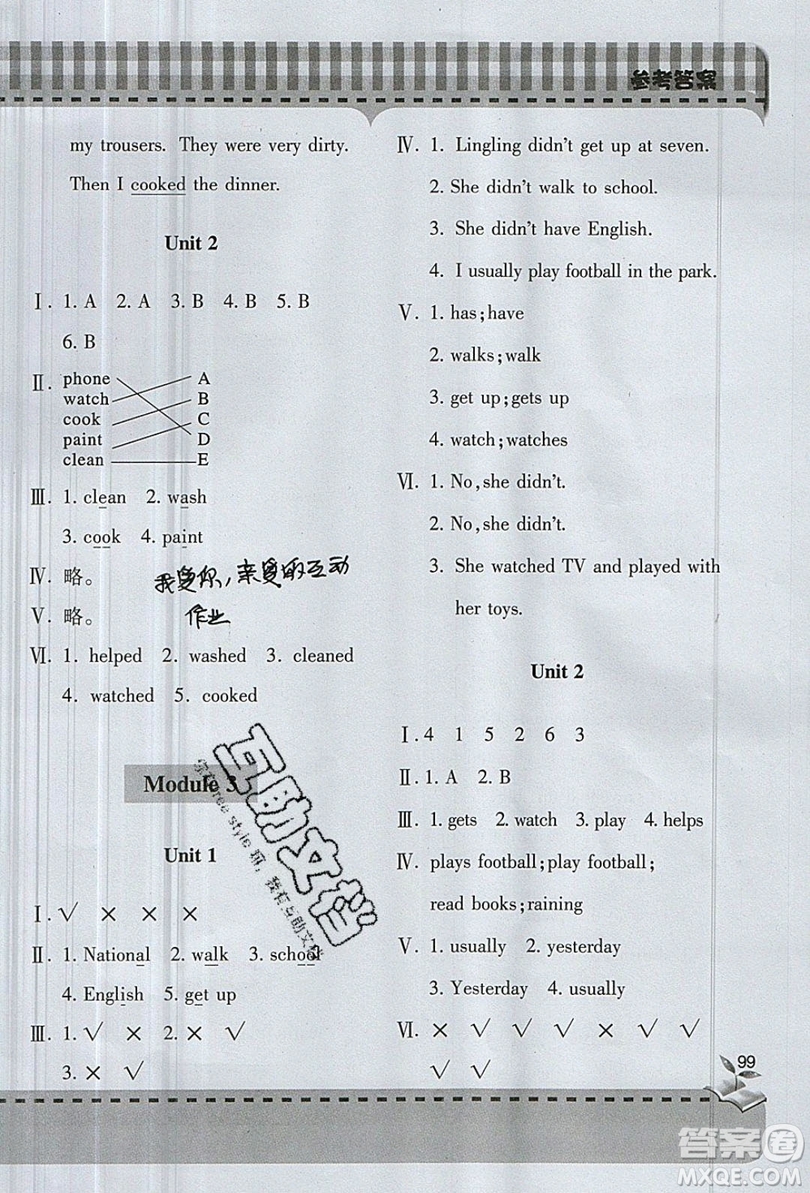 参考答案
my trousers. They were very dirty.
Then I cooked the dinner.
Unit 2
Ⅰ. 1. A 2. A 3. B 4. B 5. B
6. B
Ⅱ. phone A
watch B
cook C
paint D
clean E
Ⅲ. 1. clean 2. wash
3. cook 4. paint
Ⅳ. 略。
Ⅴ. 略。
我爱你，亲爱的互动
作业
Ⅵ. 1. helped 2. washed 3. cleaned
4. watched 5. cooked
Module 3
Unit 1
Ⅰ. √ × × ×
Ⅱ. 1. National 2. walk 3. school
4. English 5. get up
Ⅲ. 1. √ × 2. × √
3. × √
Ⅳ. 1. Lingling didn't get up at seven.
2. She didn't walk to school.
3. She didn't have English.
4. I usually play football in the park.
Ⅴ. 1. has;have
2. walks;walk
3. get up;gets up
4. watch;watches
Ⅵ. 1. No,she didn't.
2. No,she didn't.
3. She watched TV and played with
her toys.
Unit 2
Ⅰ. 4 1 5 2 6 3
Ⅱ. 1. A 2. B
Ⅲ. 1. gets 2. watch 3. play 4. helps
Ⅳ. plays football;play football;
read books;raining
Ⅴ. 1. usually 2. yesterday
3. Yesterday 4. usually
Ⅵ. × √ √ √ × √ √
99
互助文档
free style
我有互助文档
答案圈
MXQE.COM